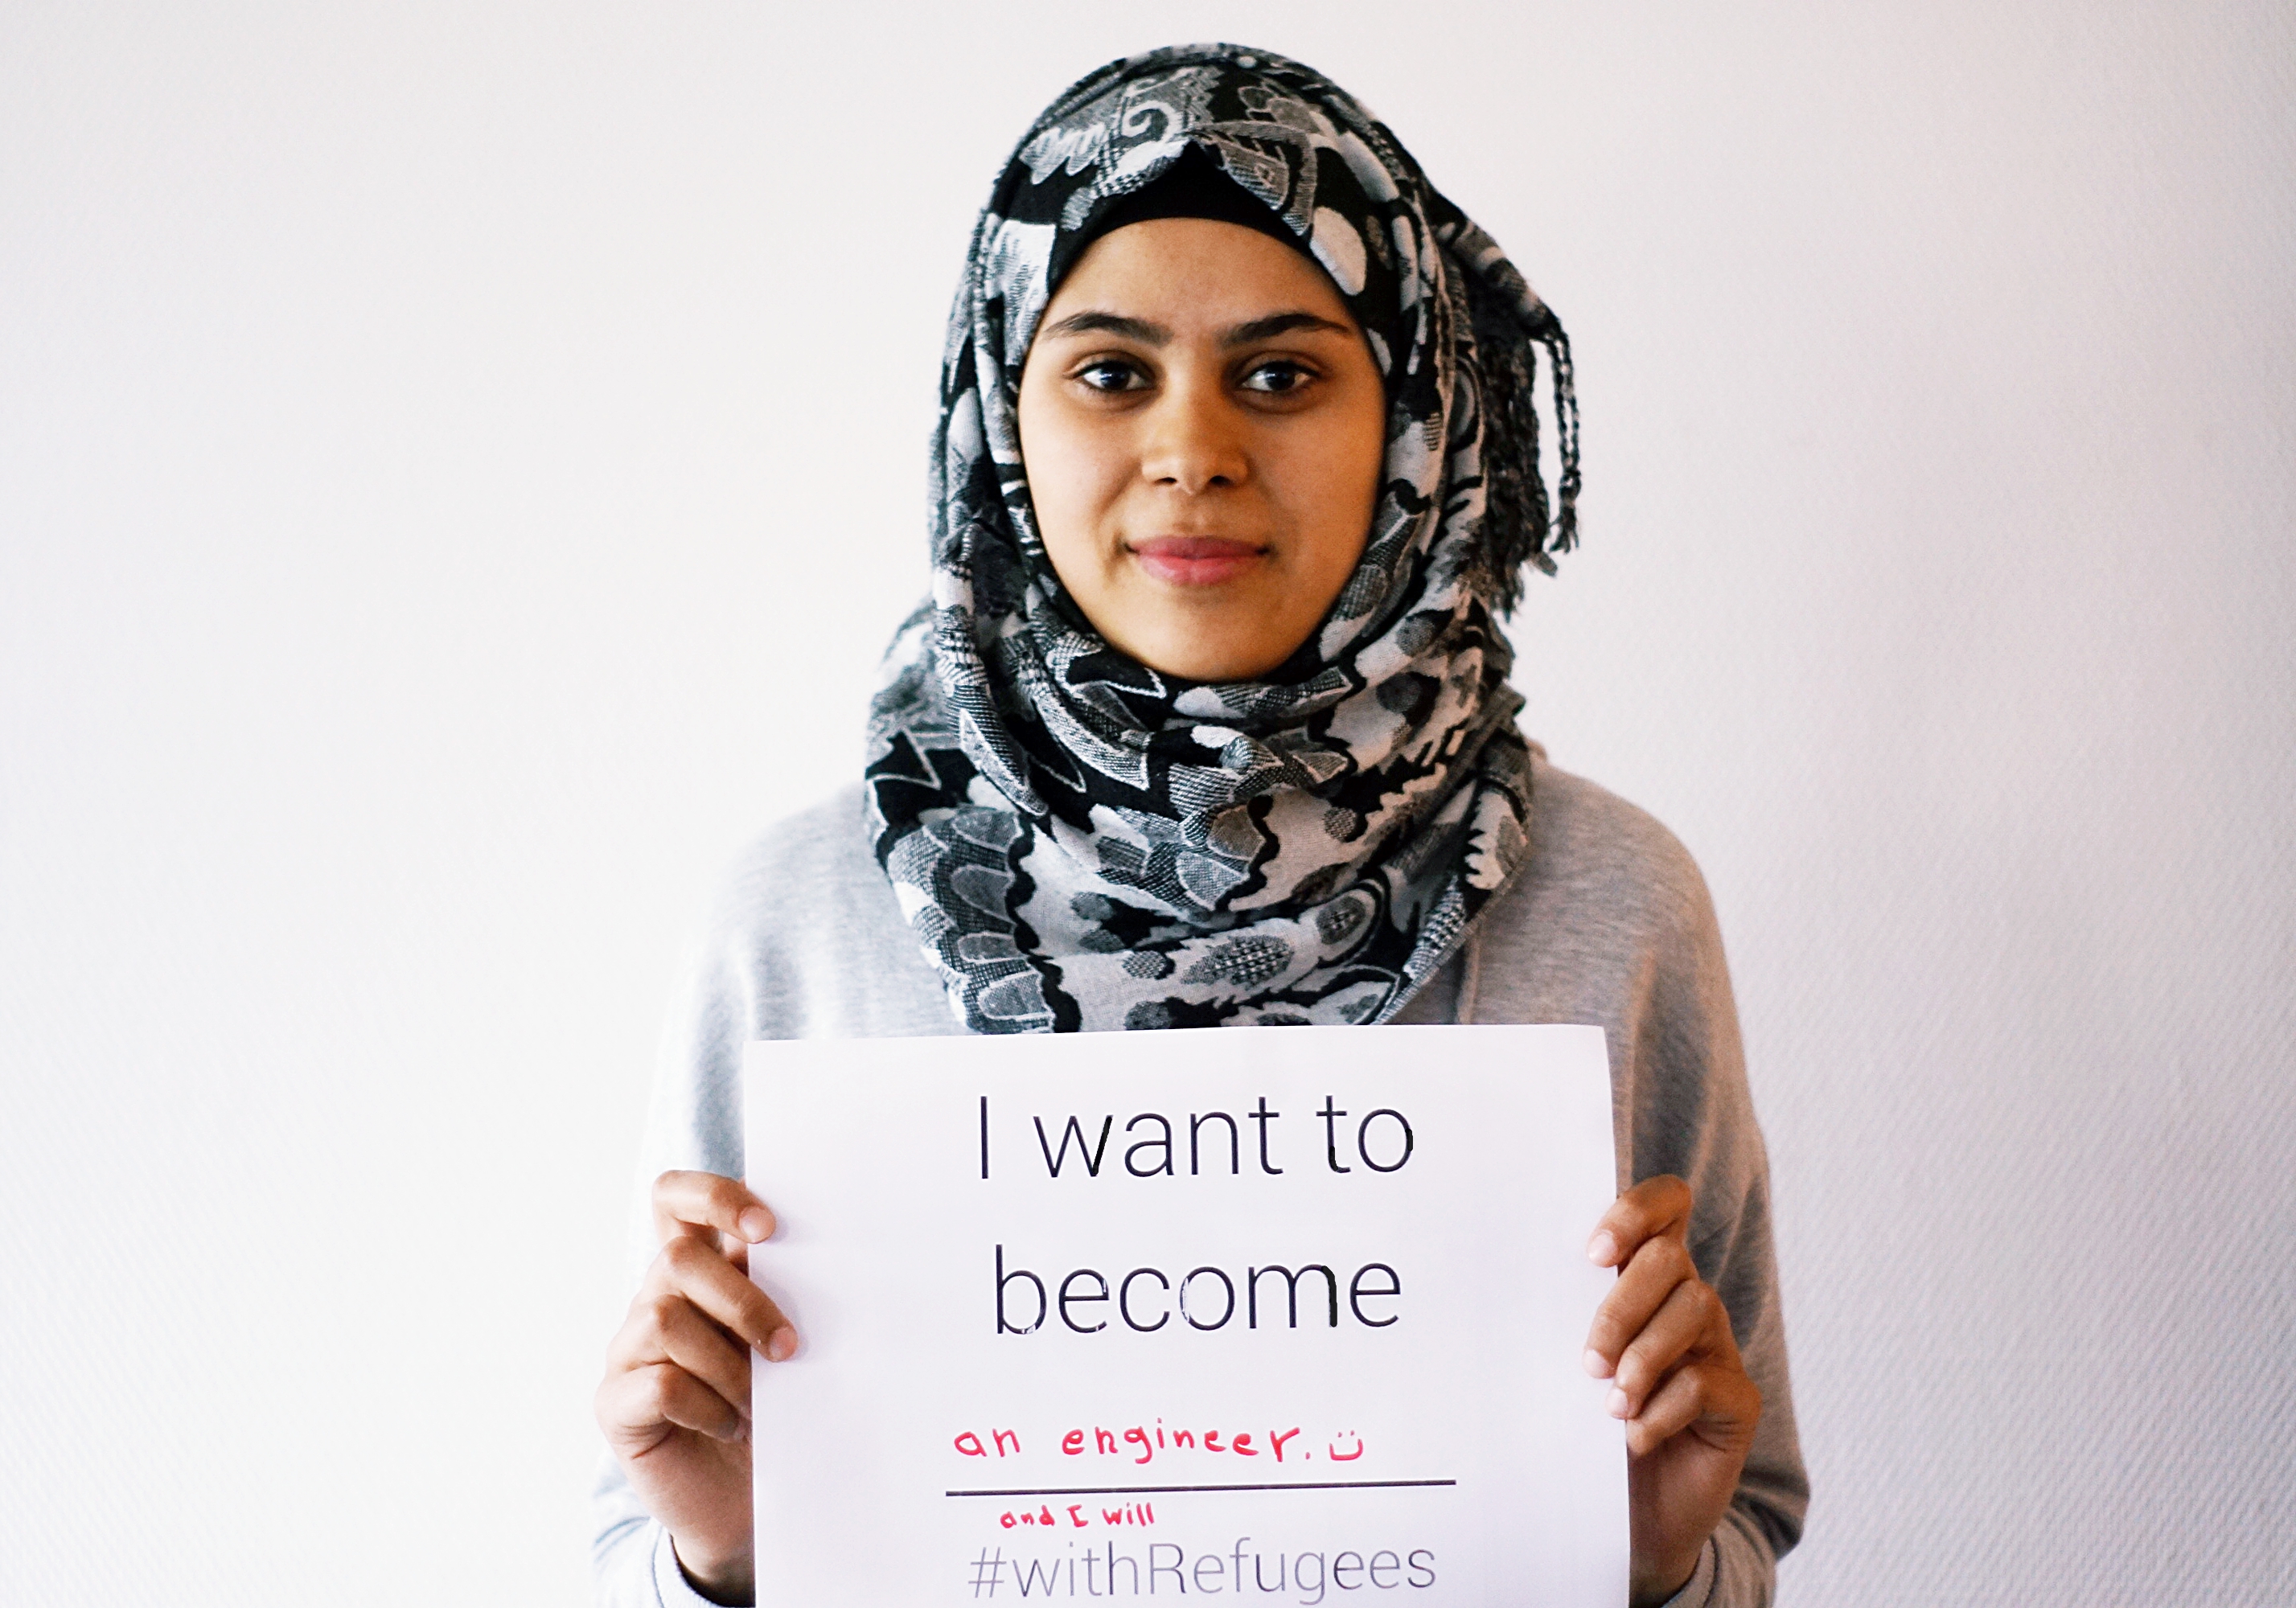 I want to
become
an engineer. :)
and I will
#withRefugees